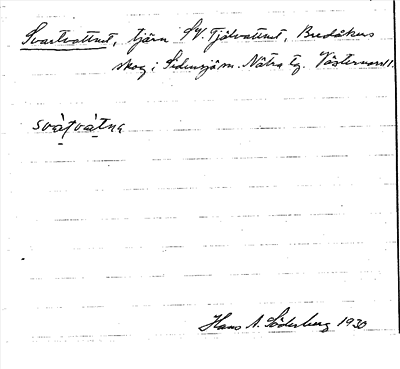 Svartvattnet, tjärn SV. Tjälvattnet, Bredåkers
skog i Sidensjö sn. Nätra tg. Västernorrl.
svàtvàtnə
Hans A. Söderberg 1930